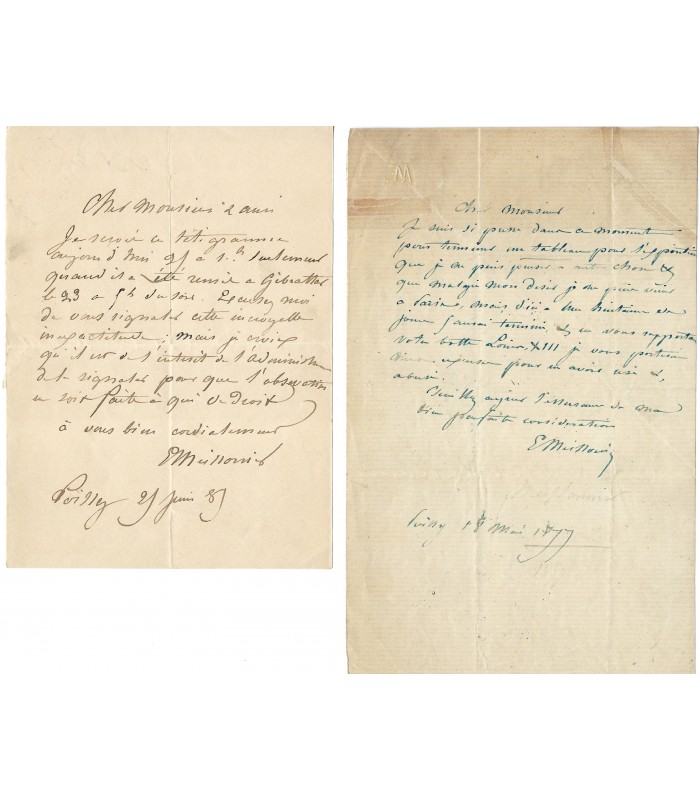 Cher Monsieur & ami
Je reçois ce télégramme
aujourd'hui 25 à 1h seulement
quand il a été remis à Gibraltar
le 23 à 5h du soir. Excusez moi
de vous signaler cette incroyable
inexactitude; mais je crois
qu'il est de l'intérêt de l'administration
de la signaler pour que l'observation
en soit faite à qui de droit
à vous bien cordialement
EMeissonier
Poissy 25 Juin 85
M
Cher Monsieur
Je suis si pressé dans ce moment
pour terminer un tableau pour l'exposition
que je ne puis penser à autre chose &
que malgré mon désir je ne puis venir
à Paris, mais d'ici à une huitaine de
jours j'aurai terminé, & en vous rapportant
votre botte Louis XIII je vous porterai
mes excuses pour en avoir usé &
abusé.
Veuillez agréer l'assurance de ma
bien parfaite considération
EMeissonier
Poissy 18 Mai 1877